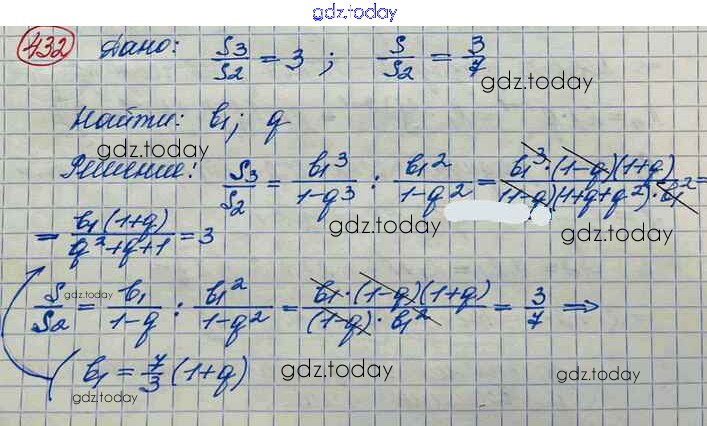 gdz.today
432 Дано: S3/S2 = 3; S/S2 = 3/7
gdz.today
Найти: b1; q
gdz.today
Решение: S3/S2 = b1^3/(1-q^3) : b1^2/(1-q^2) = b1^3·(1-q)(1+q)/((1-q)(1+q+q^2)·b1^2) =
gdz.today gdz.today
= b1(1+q)/(q^2+q+1) = 3
gdz.today
S/S2 = b1/(1-q) : b1^2/(1-q^2) = b1·(1-q)(1+q)/((1-q)·b1^2) = 3/7 ⇒
( b1 = 7/3 (1+q)
gdz.today gdz.today gdz.today